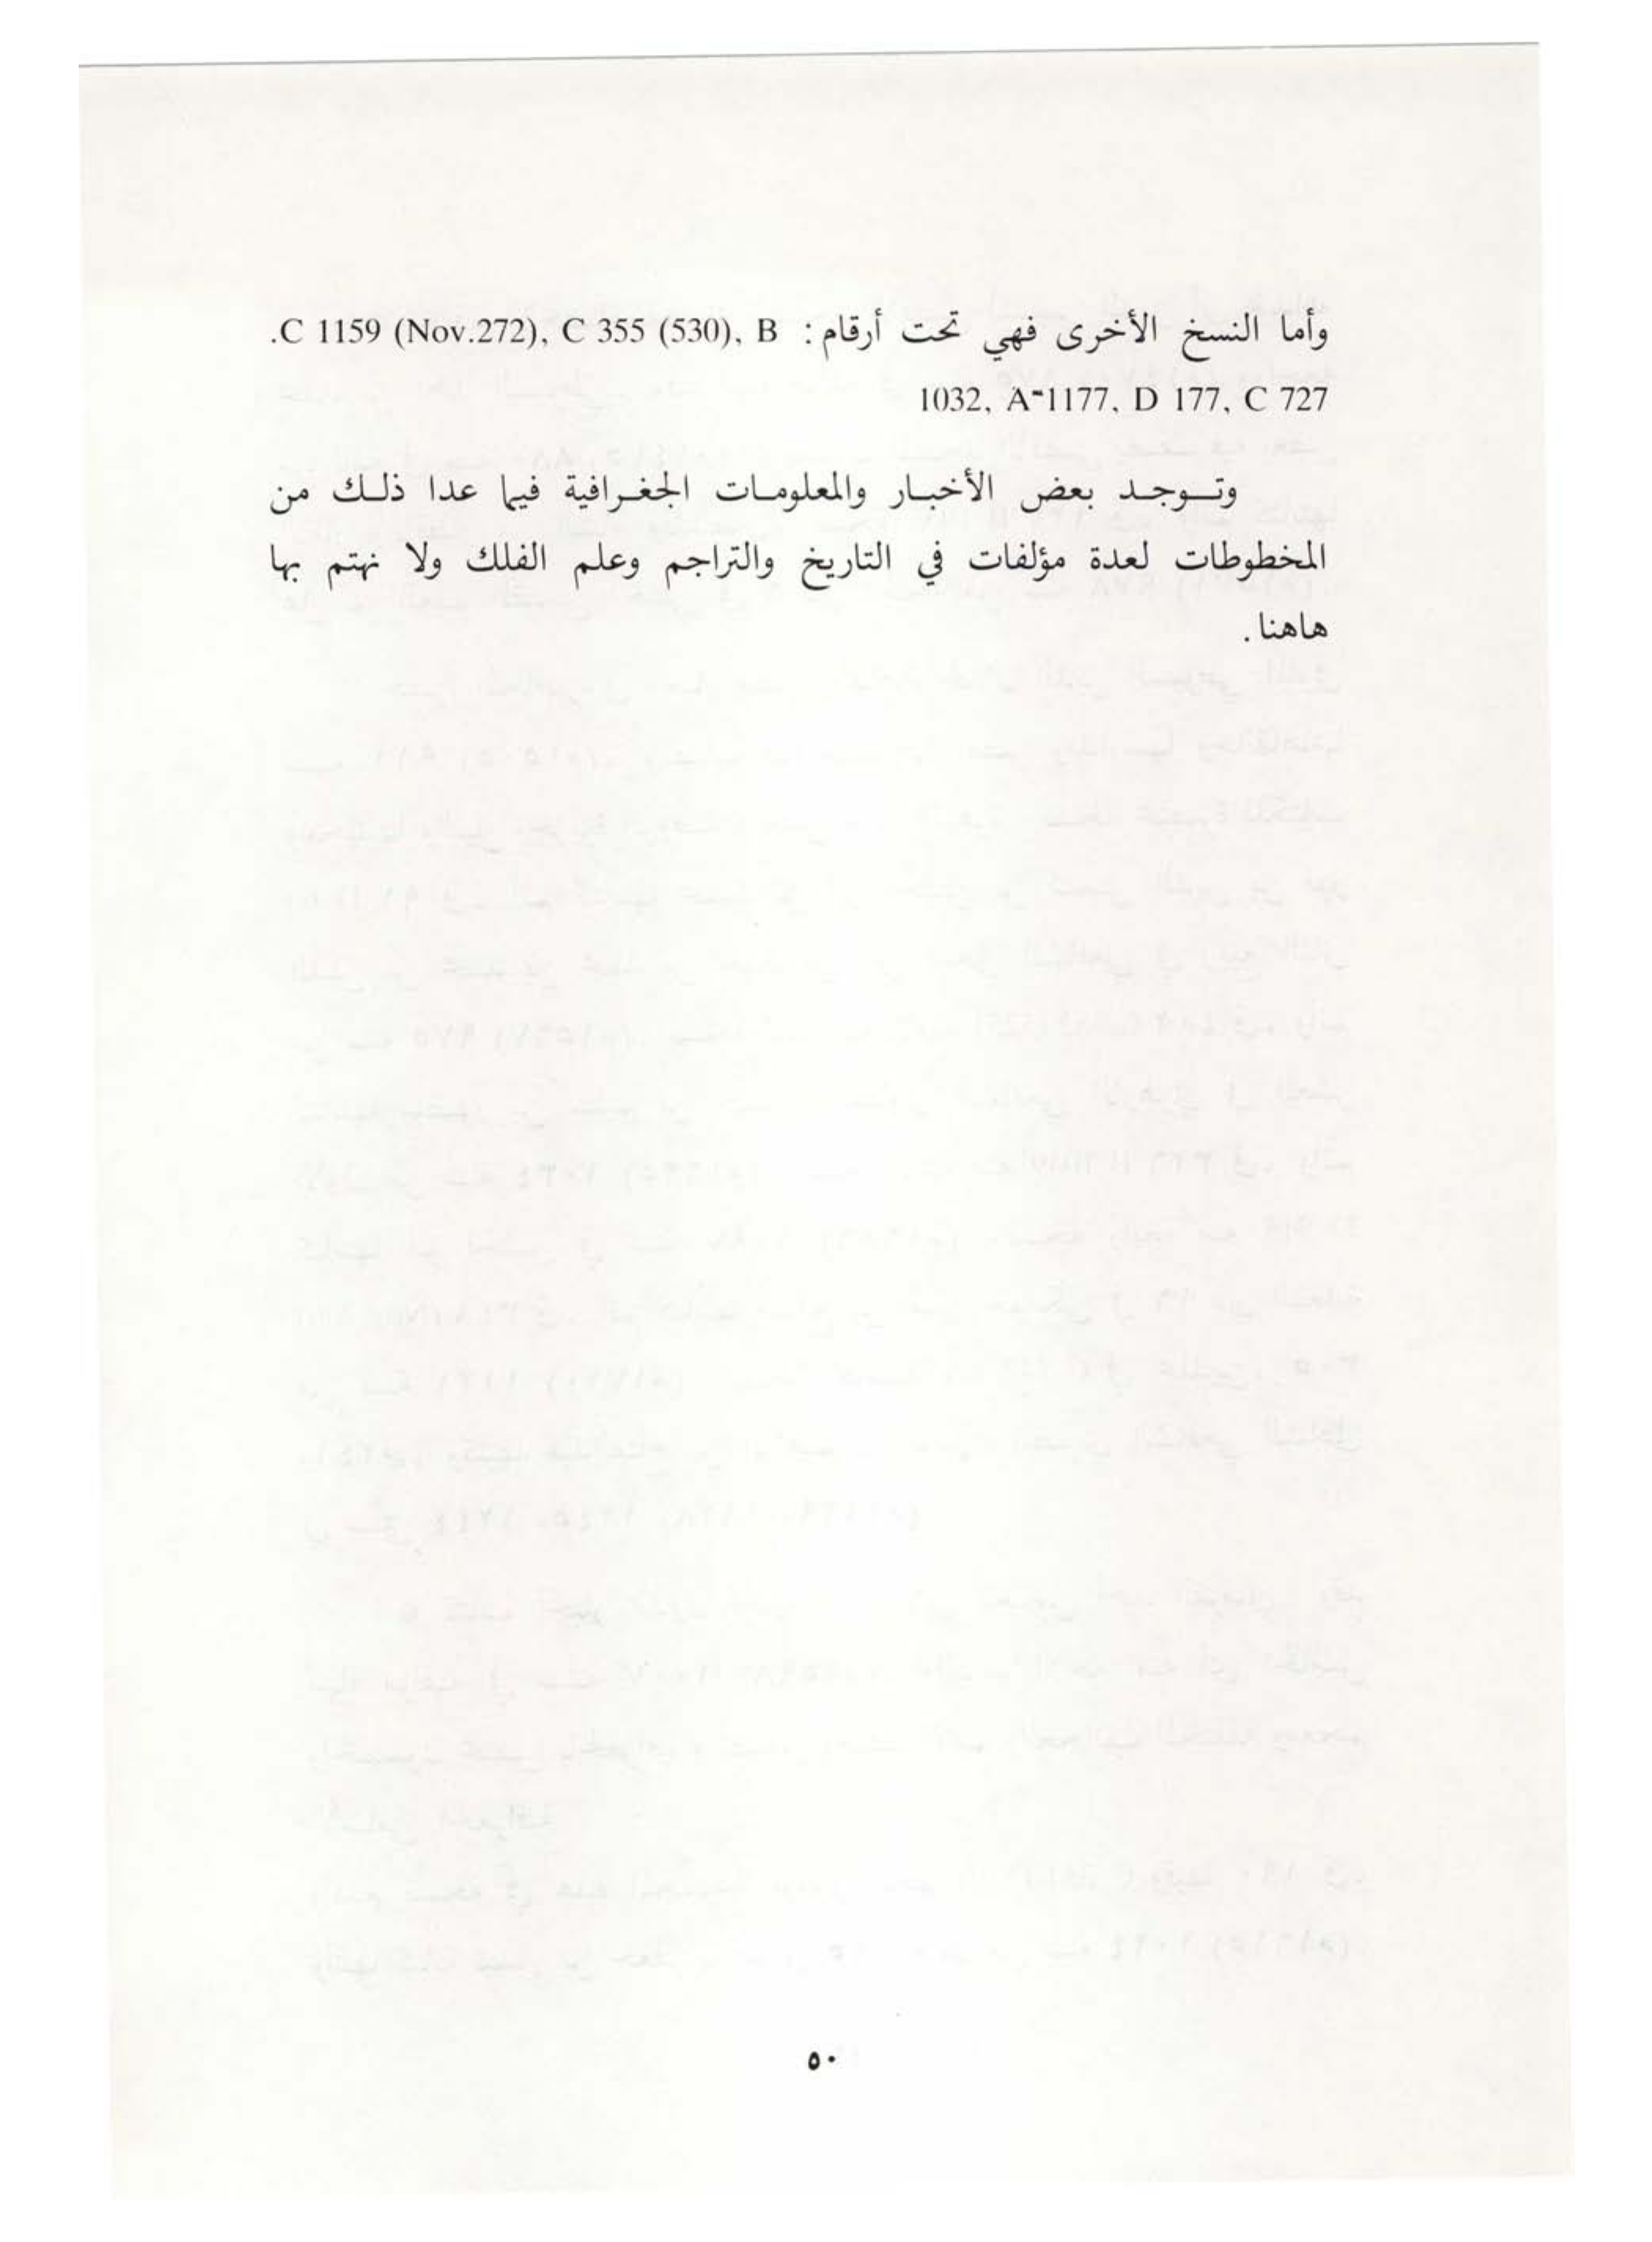 وأما النسخ الأخرى فهي تحت أرقام : C 1159 (Nov.272), C 355 (530), B.
1032, A-1177, D 177, C 727
وتوجد بعض الأخبار والمعلومات الجغرافية فيما عدا ذلك من
المخطوطات لعدة مؤلفات في التاريخ والتراجم وعلم الفلك ولا نهتم بها
هاهنا .
٥٠